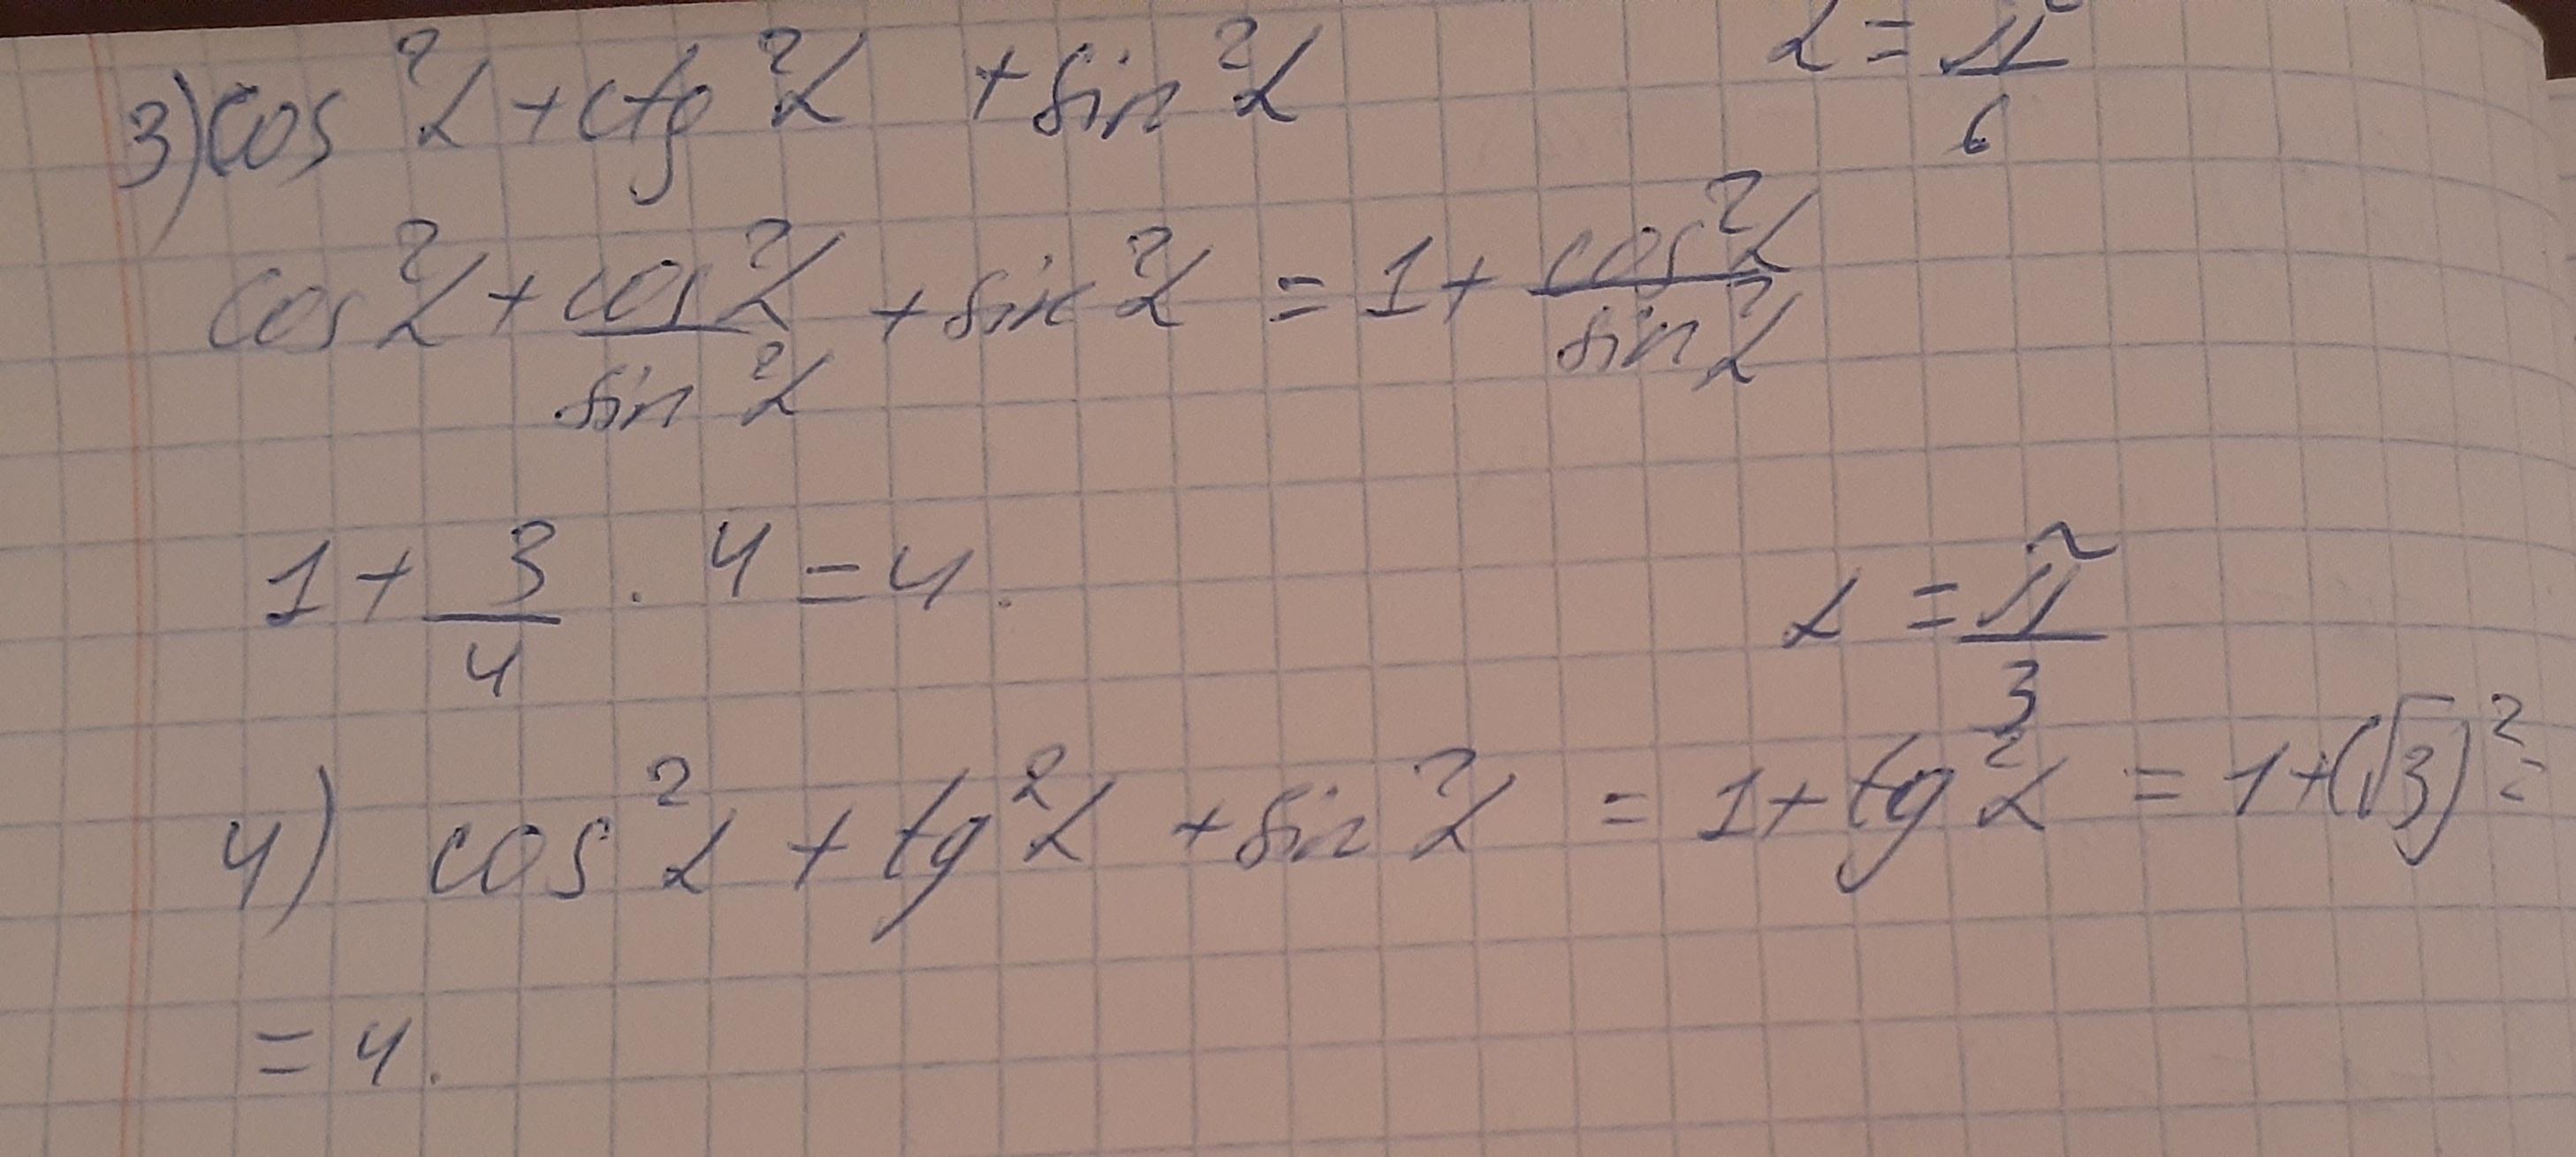 3) cos²α + ctg²α + sin²α α = π/6
cos²α + cos²α/sin²α + sin²α = 1 + cos²α/sin²α
1 + 3/4 · 4 = 4.
α = π/3
4) cos²α + tg²α + sin²α = 1 + tg²α = 1 + (√3)² =
= 4.